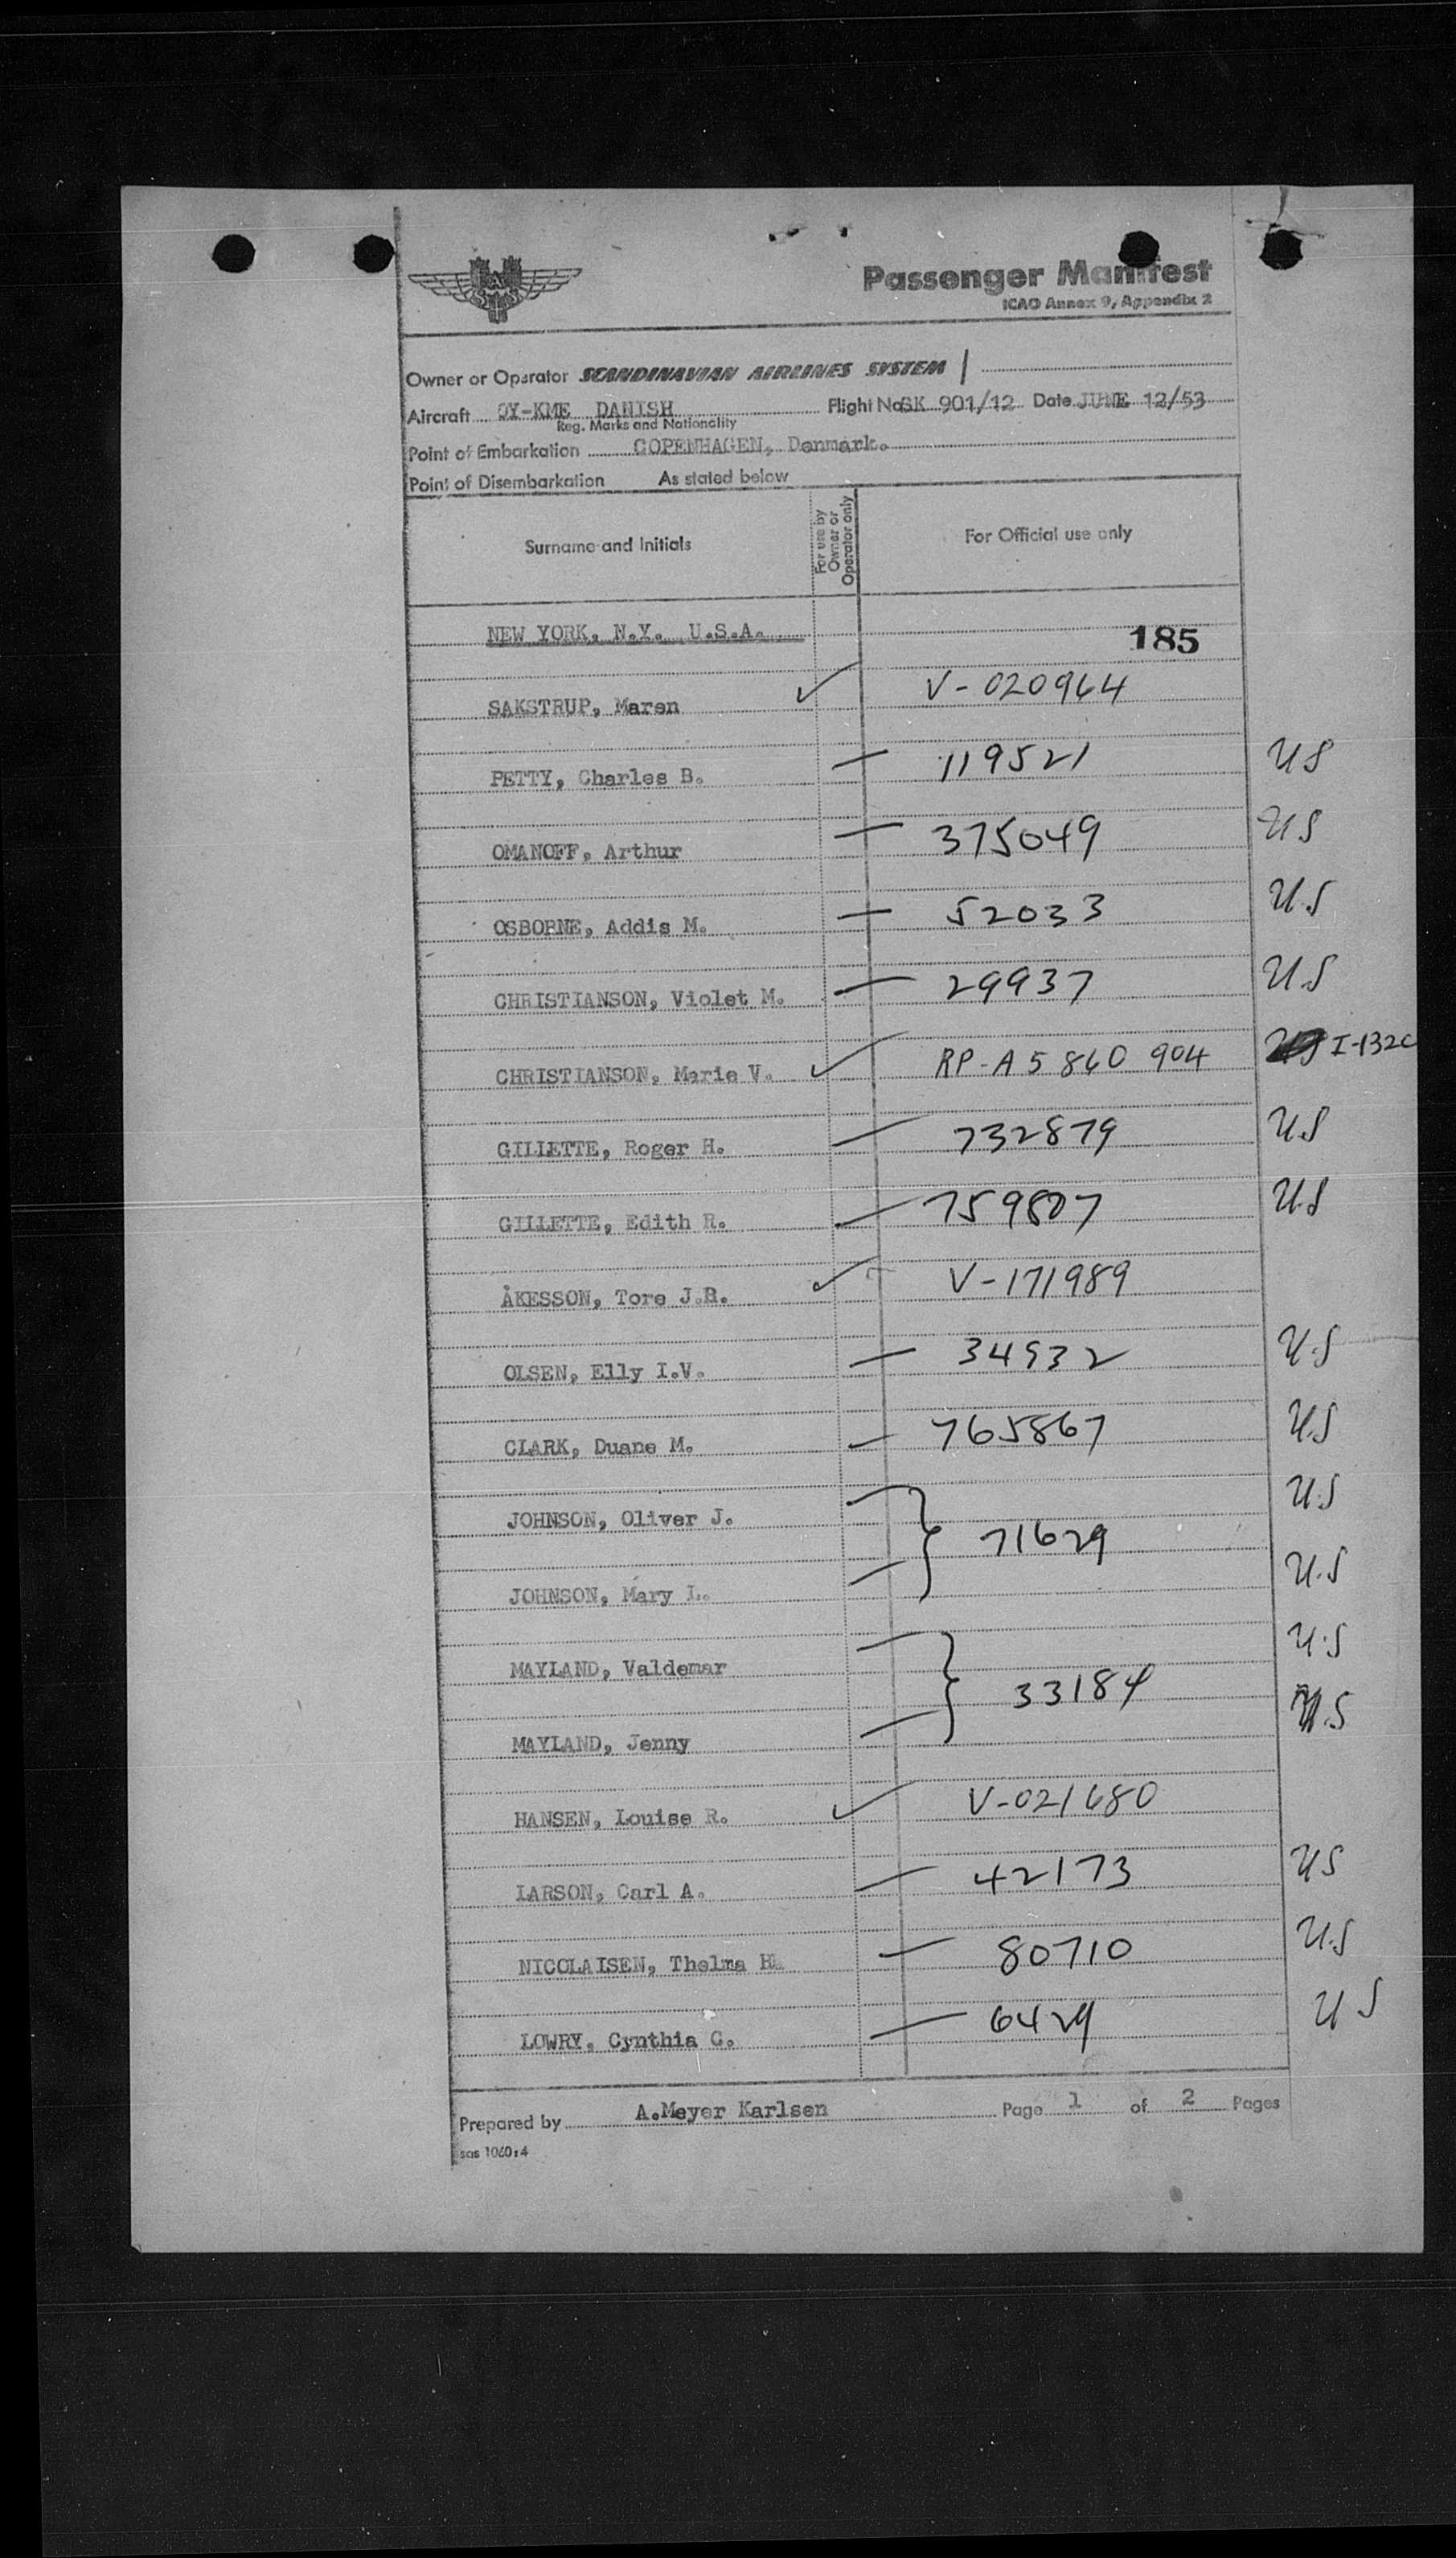 SAS
Passenger Manifest
ICAO Annex 9, Appendix 2
Owner or Operator SCANDINAVIAN AIRLINES SYSTEM
Aircraft OY-KME DANISH Flight No. SK 901/12 Date JUNE 12/53
Reg. Marks and Nationality
Point of Embarkation COPENHAGEN, Denmark.
Point of Disembarkation As stated below
Surname and Initials For use by Owner or Operator only For Official use only
NEW YORK, N.Y. U.S.A. 185
SAKSTRUP, Maren ✓ V-020964
PETTY, Charles B. — 119521 US
OMANOFF, Arthur — 375049 US
OSBORNE, Addis M. — 52033 U.S
CHRISTIANSON, Violet M. — 29937 U.S
CHRISTIANSON, Marie V. ✓ RP-A5 860 904 I-132C
GILLETTE, Roger H. — 732879 U.S
GILLETTE, Edith R. — 759807 U.S
ÅKESSON, Tore J.R. ✓ V-171989
OLSEN, Elly I.V. — 34932 U.S
CLARK, Duane M. — 765867 U.S
JOHNSON, Oliver J. — U.S
71629
JOHNSON, Mary I. — U.S
MAYLAND, Valdemar — U.S
33184
MAYLAND, Jenny — U.S
HANSEN, Louise R. ✓ V-021680
LARSON, Carl A. — 42173 US
NICOLAISEN, Thelma — 80710 U.S
LOWRY, Cynthia C. — 6429 US
Prepared by A.Meyer Karlsen Page 1 of 2 Pages
sas 1060:4